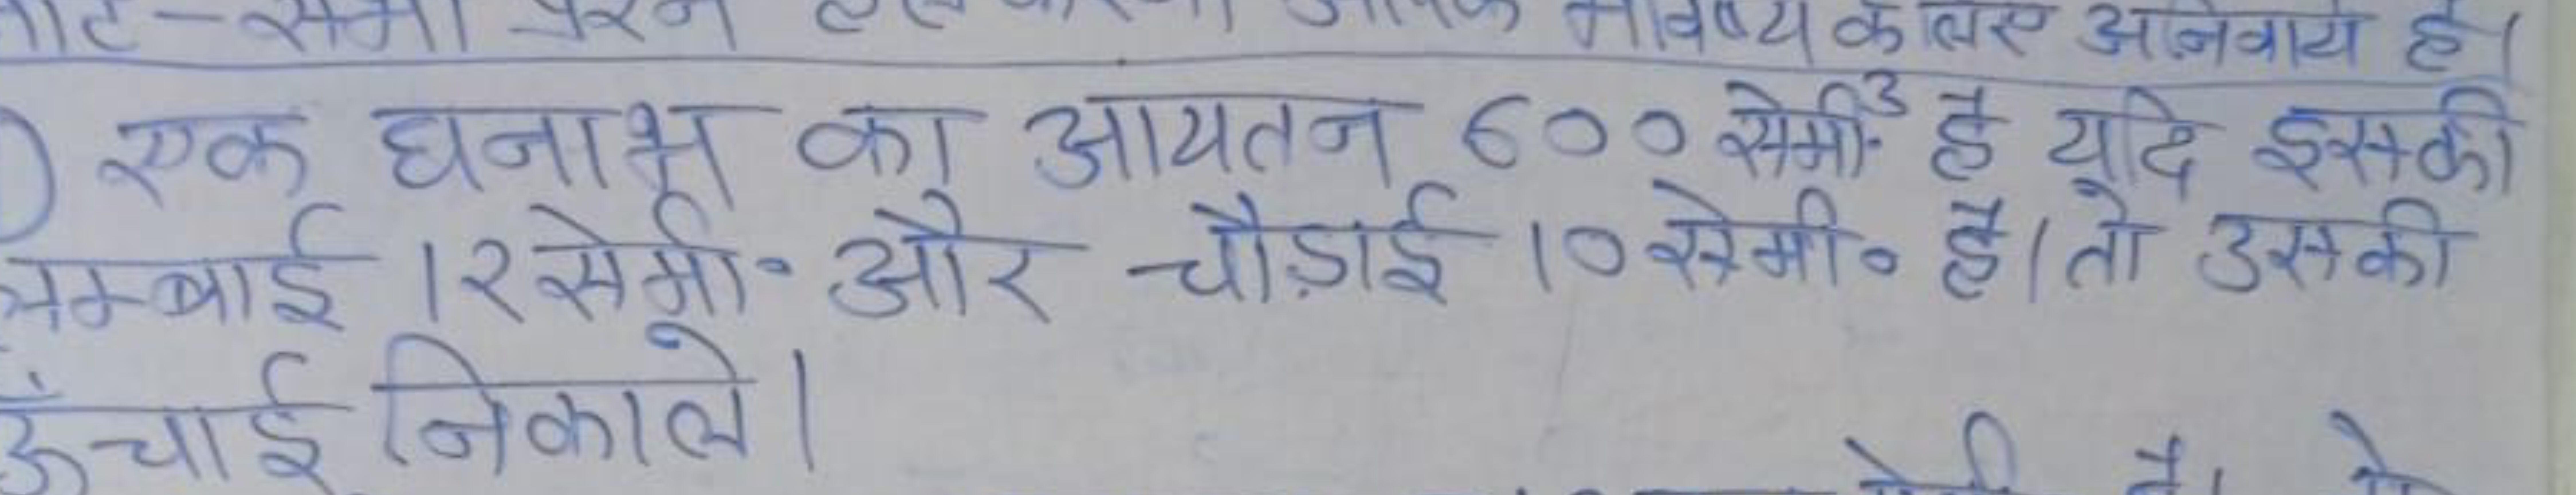 भविष्य के लिए अनिवार्य है।
एक घनाभ का आयतन 600 सेमी.³ है यदि इसकी
लम्बाई 12 सेमी॰ और चौड़ाई 10 सेमी॰ है। तो उसकी
ऊँचाई निकाले।